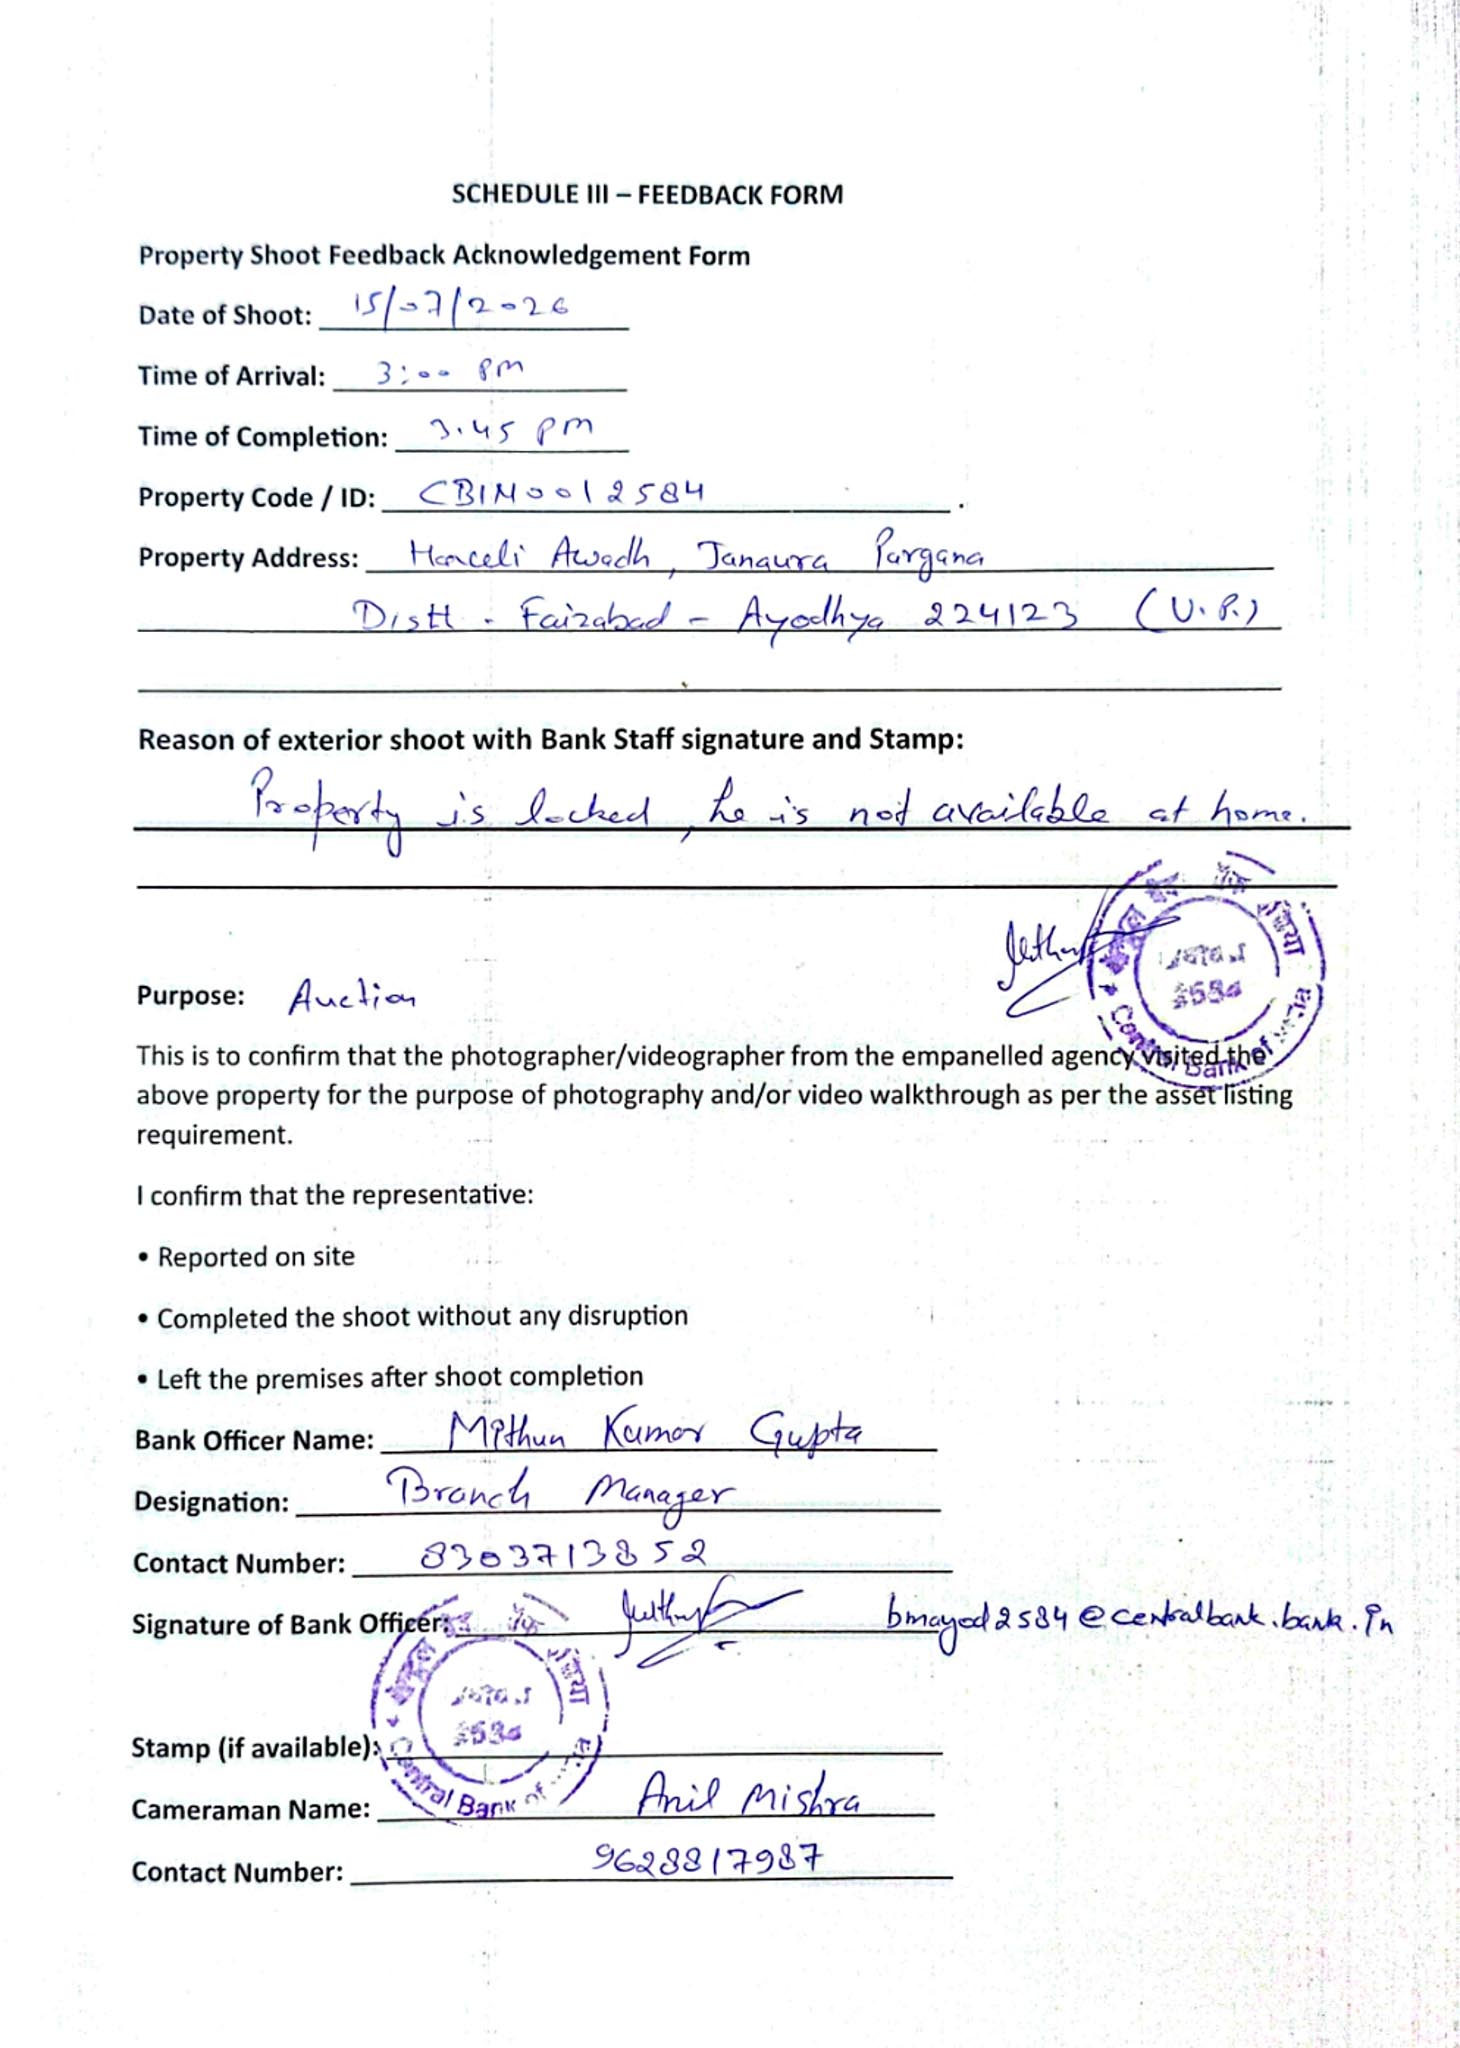 SCHEDULE III – FEEDBACK FORM
Property Shoot Feedback Acknowledgement Form
Date of Shoot: 15/07/2026
Time of Arrival: 3:00 PM
Time of Completion: 3.45 PM
Property Code / ID: CBIN0012584 .
Property Address: Awadh, Janaura Pargana
Distt - Faizabad - Ayodhya 224123 (U.P.)
Reason of exterior shoot with Bank Staff signature and Stamp:
Property is locked, he is not available at home.
Purpose: Auction
Central Bank of
This is to confirm that the photographer/videographer from the empanelled agency visited the
above property for the purpose of photography and/or video walkthrough as per the asset listing
requirement.
I confirm that the representative:
• Reported on site
• Completed the shoot without any disruption
• Left the premises after shoot completion
Bank Officer Name: Mithun Kumar Gupta
Designation: Branch Manager
Contact Number: 8303713852
Signature of Bank Officer: bmayod2584@centralbank.bank.in
Stamp (if available):
Central Bank of
Cameraman Name: Anil Mishra
Contact Number: 9628817987